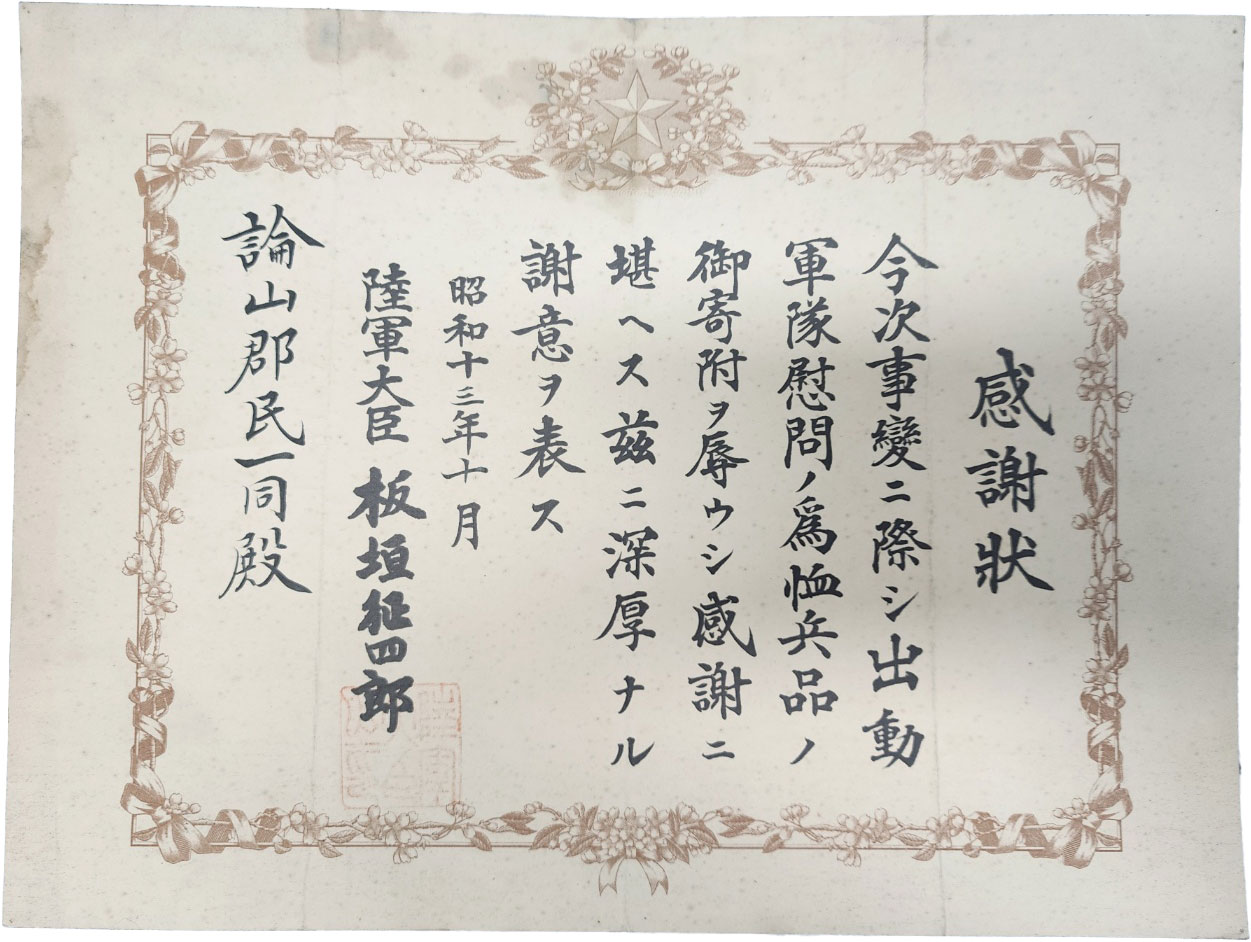 感謝狀
今次事變ニ際シ出動
軍隊慰問ノ爲恤兵品ノ
御寄附ヲ辱ウシ感謝ニ
堪ヘス茲ニ深厚ナル
謝意ヲ表ス
昭和十三年十月
陸軍大臣 板垣征四郎
論山郡民一同殿